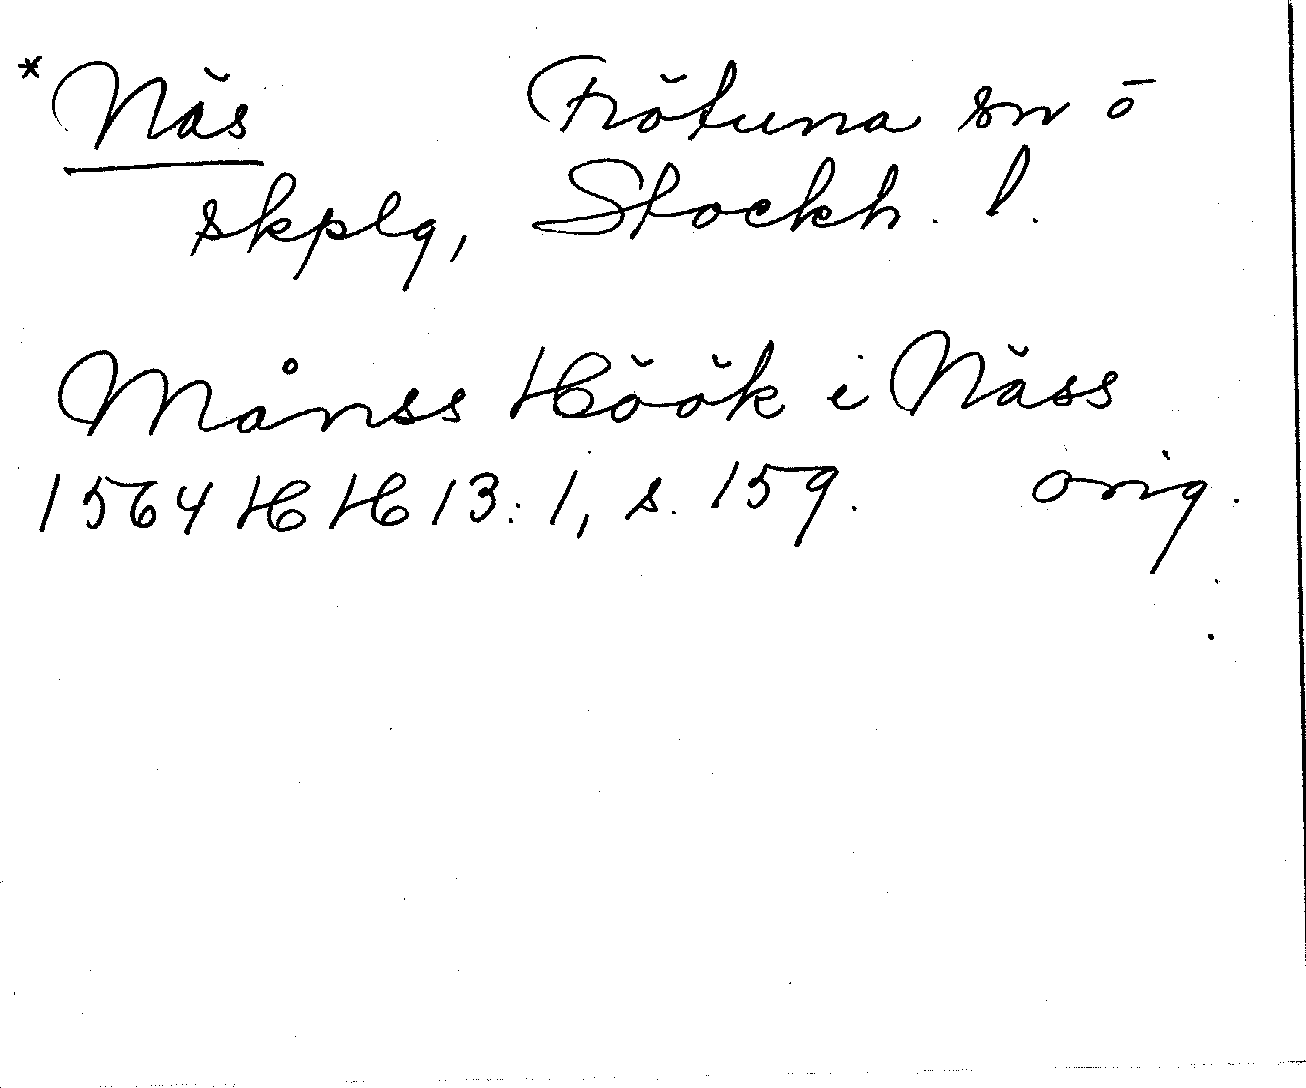 *Näs Frötuna sn ō
skplg, Stockh. l.
Månss Höök i Näss
1564 HH 13:1, s. 159. orig.